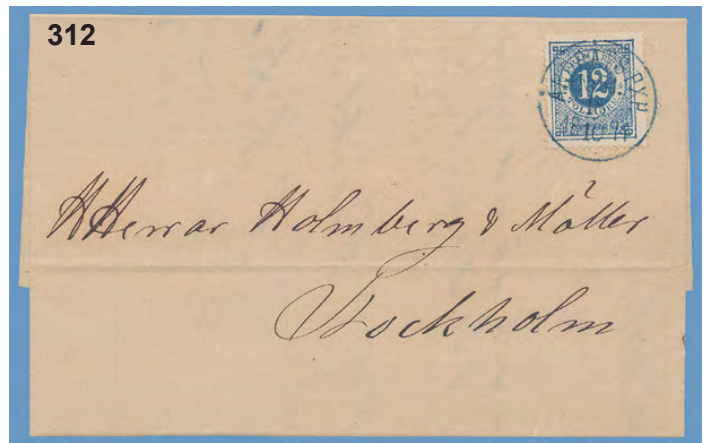 312
12
TOLF ÖRE
HHerrar Holmberg & Möller
Stockholm